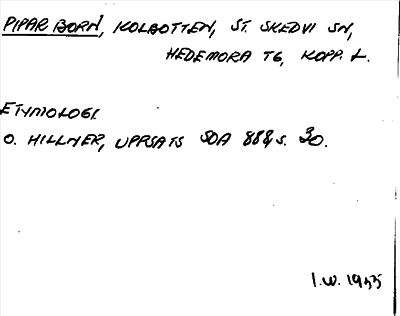 PIPAR BORN, KOLBOTTEN, ST. SKEDVI SN,
HEDEMORA TG, KOPP. L.
ETYMOLOGI.
O. HILLNER, UPPSATS SOA 888, S. 30.
I.W. 1935